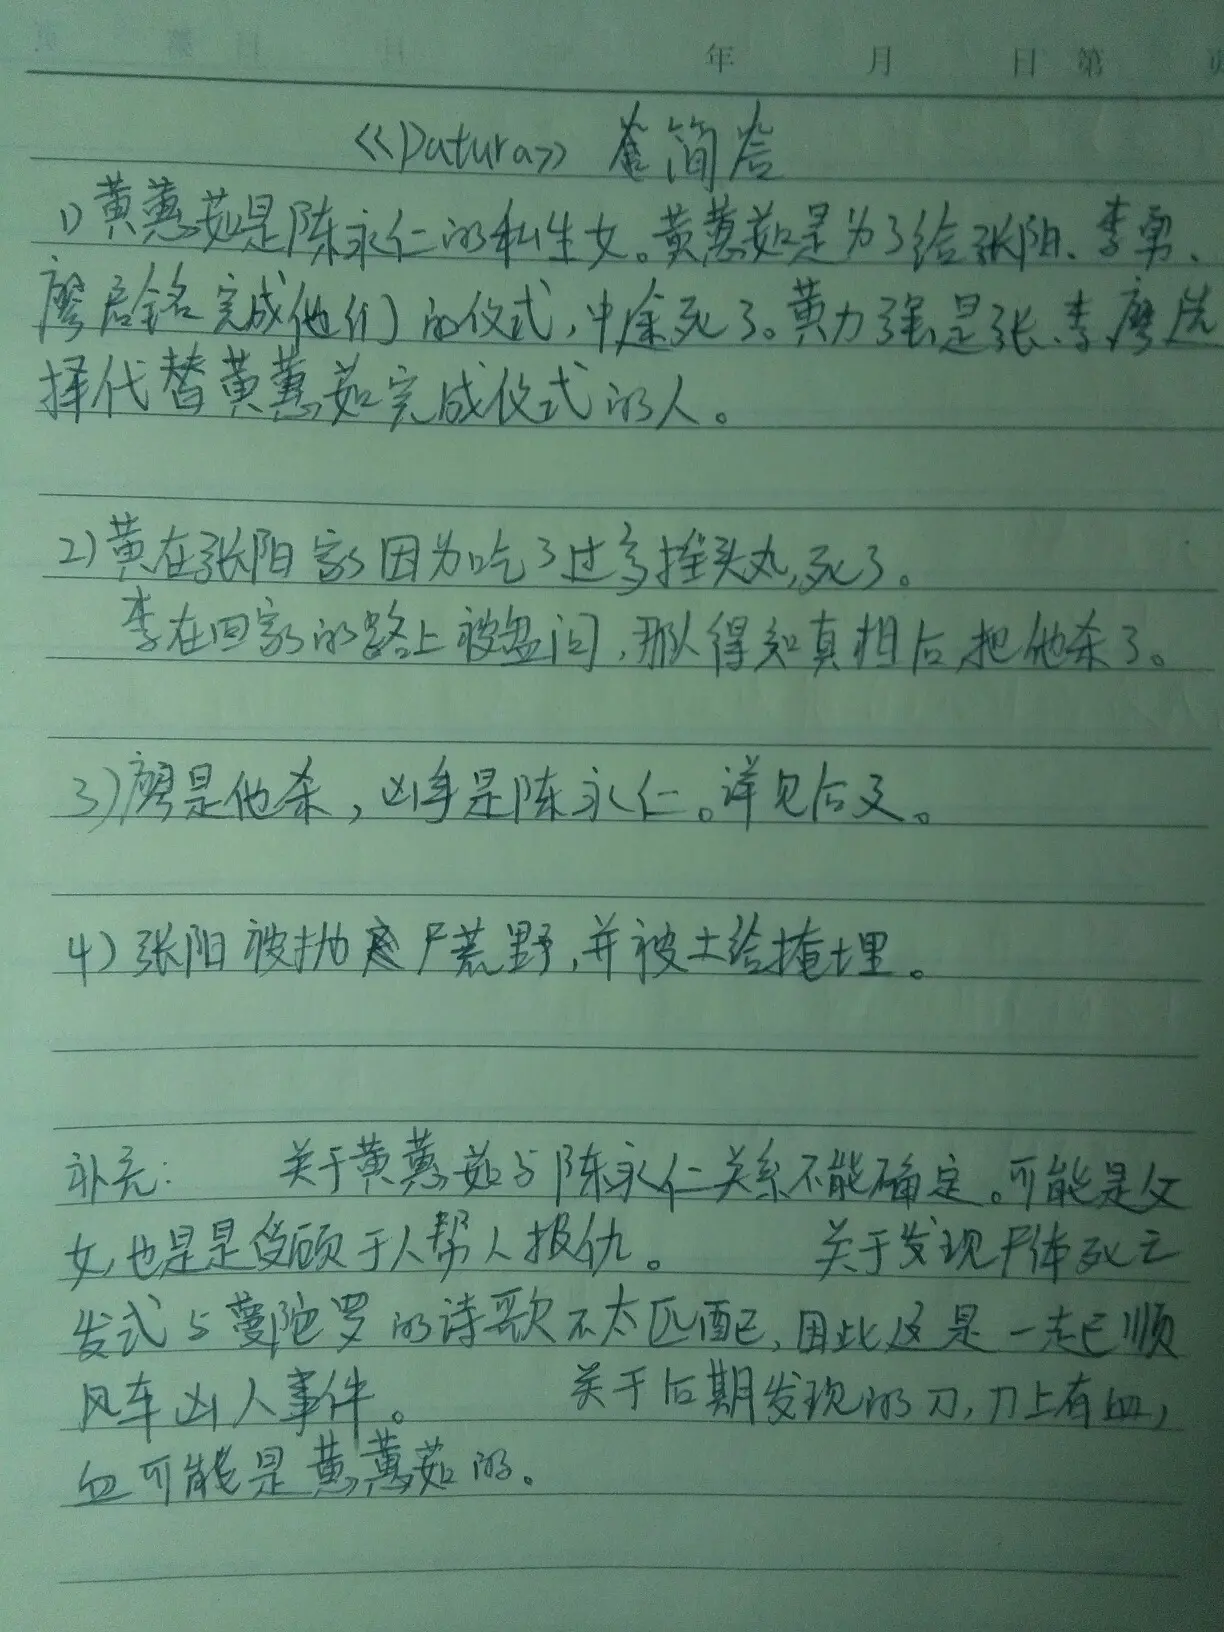 年 月 日 第 页
《Datura》简答
1)黄蕙茹是陈永仁的私生女。黄蕙茹是为了给张阳、李勇、
廖启铭完成他们的仪式,中途死了。黄力强是张、李、廖选
择代替黄蕙茹完成仪式的人。
2)黄在张阳家因为吃了过多摇头丸,死了。
李在回家的路上被盘问,那人得知真相后,把他杀了。
3)廖是他杀,凶手是陈永仁。详见后文。
4)张阳被抛尸荒野,并被土给掩埋。
补充: 关于黄蕙茹与陈永仁关系不能确定。可能是父
女,也是是受顾于人帮人报仇。 关于发现尸体死亡
发式与蔓陀罗的诗歌不太匹配,因此这是一起顺
风车凶人事件。 关于后期发现的刀,刀上有血,
血可能是黄蕙茹的。